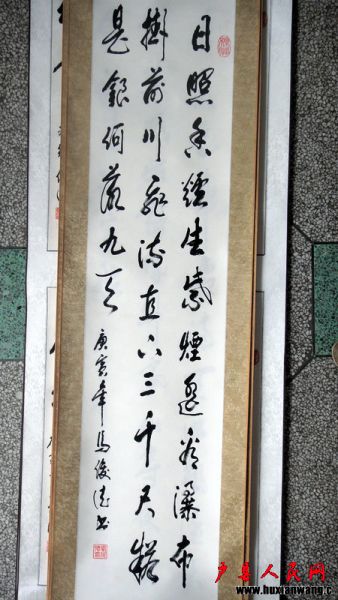 日照香爐生紫煙遥看瀑布
掛前川飛流直下三千尺疑
是銀河落九天 庚寅年馬俊書
户县人民网
www.huxianwang.c